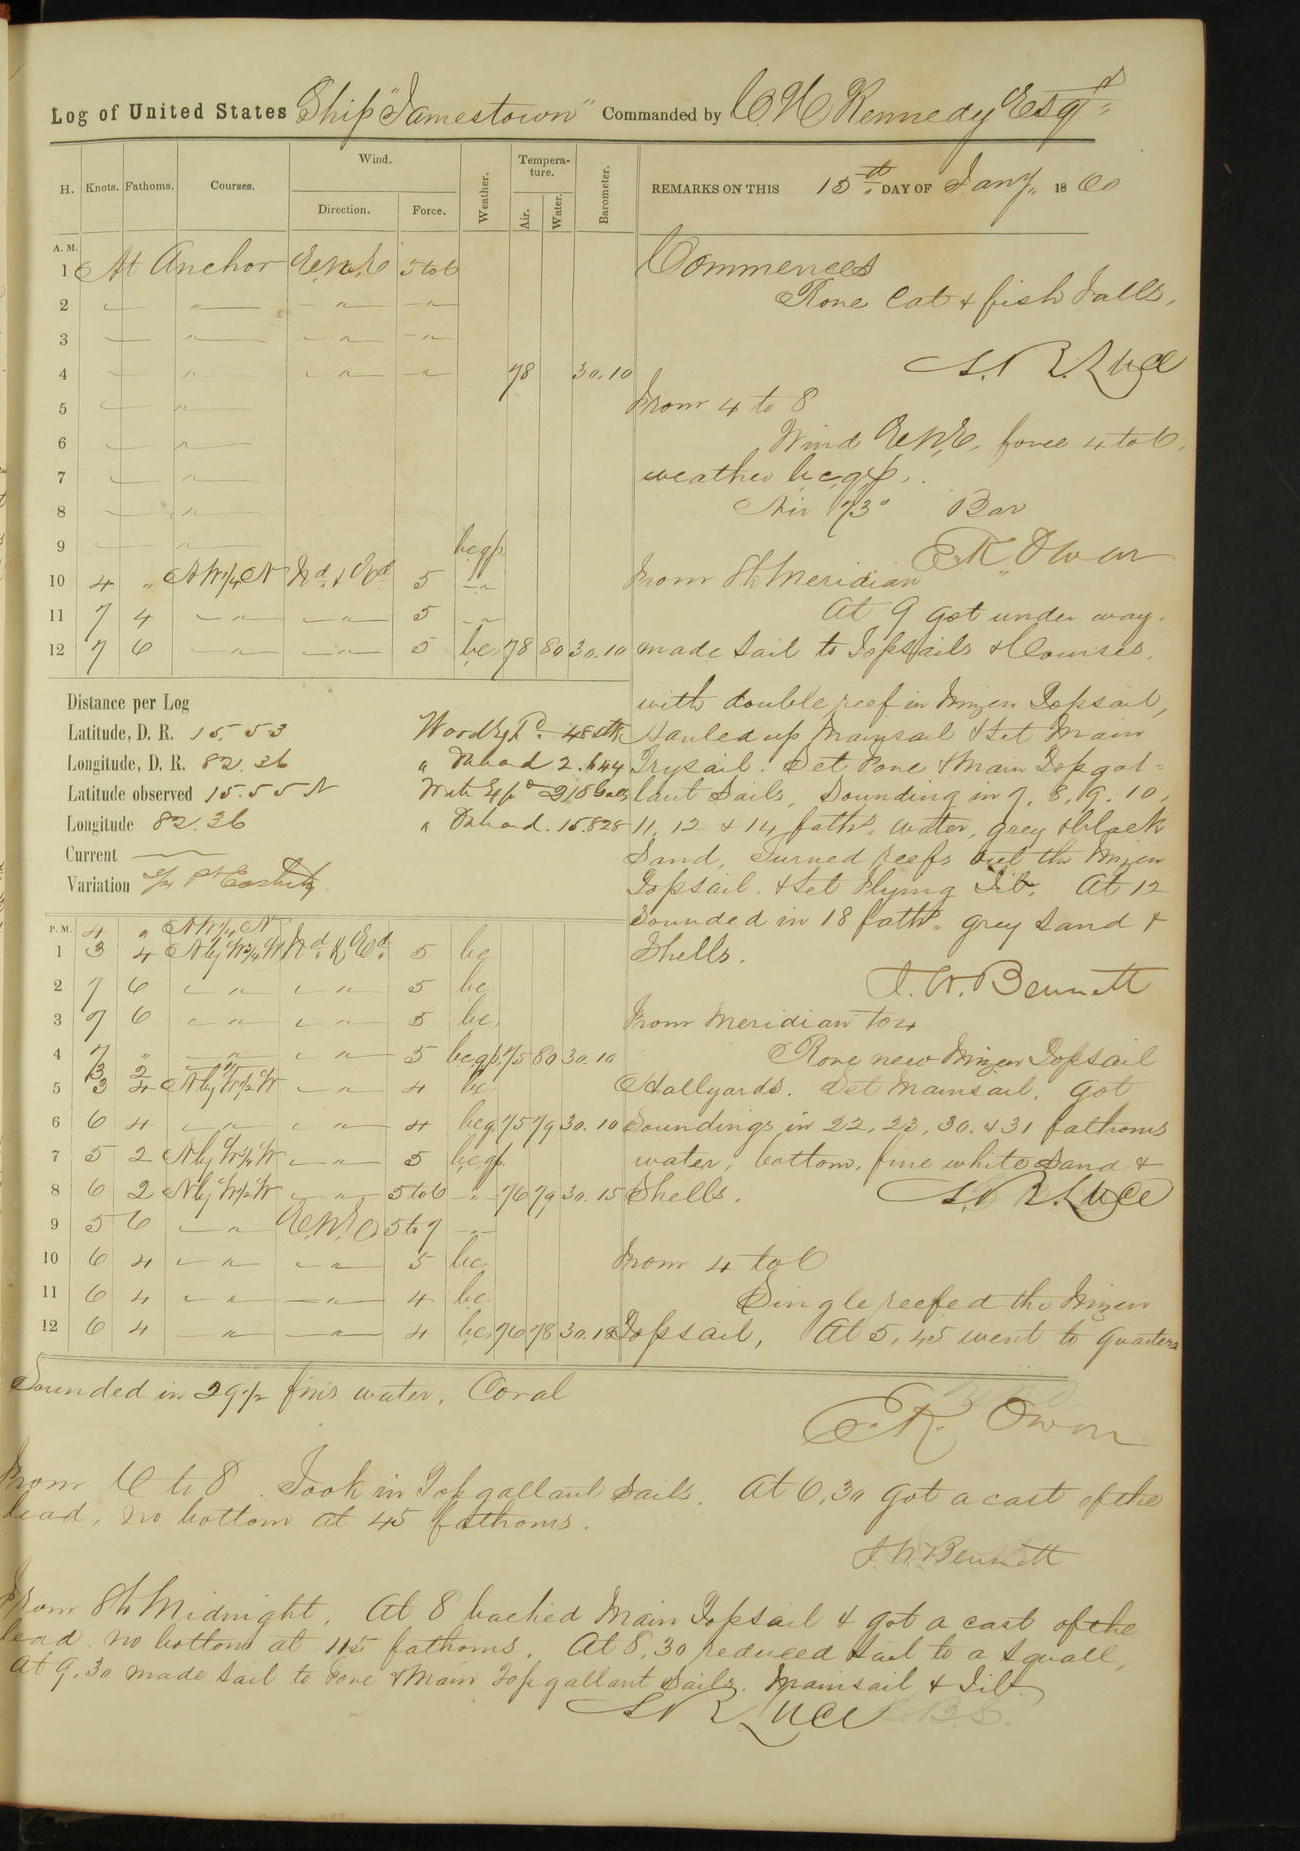 Log of United States Ship "Jamestown" Commanded by C. H. Kennedy Esqr
H. Knots. Fathoms. Courses. Wind. Direction. Force. Weather. Temperature. Air. Water. Barometer.
REMARKS ON THIS 15th DAY OF Jany. 1860
A. M.
1 At Anchor E.N.E 5 to 6
2 " " "
3 " " "
4 " " " 78 30.10
5 "
6 "
7 "
8 "
9 " bcqp
10 4 " NW3/4N Nd & Ed 5 "
11 7 4 " " 5 "
12 7 6 " " 5 bc 78 80 30.10
Commences
Rove Cat & fish Falls.
S. B. Luce
From 4 to 8
Wind E.N.E, force 4 to 6,
weather b.c.q.p.
Air 73° Bar
E. K. Owen
From 8 to Meridian
At 9 got under way.
made sail to Topsails & Courses.
with double reef in Mizen Topsail,
Hauled up Mainsail & set Main
Trysail. Set Fore & Main Topgal=
lant Sails, Sounding in 7, 8, 9, 10,
11, 12 & 14 faths. water, grey & black
Sand, Turned reefs out the Mizen
Topsail. & set Flying Jib. At 12
Sounded in 18 faths. grey sand &
Shells.
J. W. Bennett
Distance per Log
Latitude, D. R. 15.53
Longitude, D. R. 82.36
Latitude observed 15.55 N
Longitude 82.36
Current
Variation
" On hand 2.644
" On hand. 15.828
P. M. 4 " NW1/4N
1 3 4 NbyW3/4W Nd & Ed 5 bc
2 7 6 " " 5 bc
3 7 6 " " 5 bc
4 7 " " " 5 bcqp 75 80 30.10
3 2 "
5 3 4 NbyW1/2W " 4 bc
6 6 4 " " 4 bcq 75 79 30.10
7 5 2 NbyW1/4W " 5 bcqp
8 6 2 NbyW1/2W " 5 to 6 " 76 79 30.15
9 5 6 " E.N.E 5 to 7 "
10 6 4 " " 5 bc
11 6 4 " " 4 bc
12 6 4 " " 4 bc 76 78 30.18
From Meridian to 4
Rove new Mizen Topsail
Hallyards. Set Mainsail. Got
Soundings in 22, 23, 30, & 31 fathoms
water, bottom, fine white Sand &
Shells. S. B. Luce
From 4 to 6
Single reefed the Mizen
Topsail, At 5,45 went to Quarters
Sounded in 29 1/2 fms water. Coral
E. K. Owen
From 6 to 8. Took in Topgallant Sails. At 6,30 got a cast of the
lead, no bottom at 45 fathoms.
J. W. Bennett
From 8 to Midnight. At 8 backed Main Topsail & got a cast of the
lead no bottom at 115 fathoms. At 8,30 reduced sail to a squall,
at 9.30 made sail to Fore & Main Topgallant Sails. Mainsail & Jib.
S. B. Luce